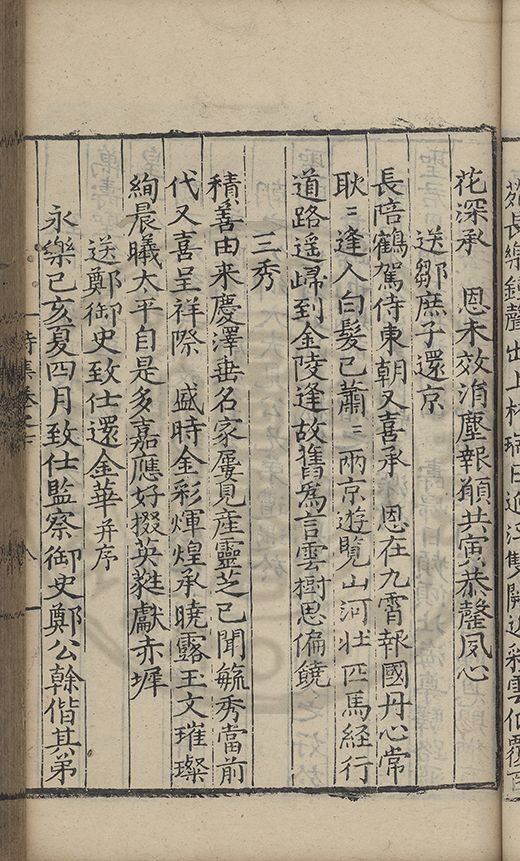 花深承　恩未效涓塵報願共寅恭罄夙心
送鄒庶子還京
長陪鶴駕侍東朝又喜承　恩在九霄報國丹心常
耿〻逢人白髮已蕭〻兩京遊覽山河壯匹馬経行
道路遥歸到金陵逢故舊爲言雲樹思偏饒
三秀
積善由来慶澤垂名家屢見産靈芝已聞毓秀當前
代又喜呈祥際　盛時金彩煇煌承曉露玉文璀璨
絢晨曦太平自是多嘉應好掇英蕤獻赤墀
送鄭御史致仕還金華并序
永樂己亥夏四月致仕監察御史鄭公榦偕其弟
八